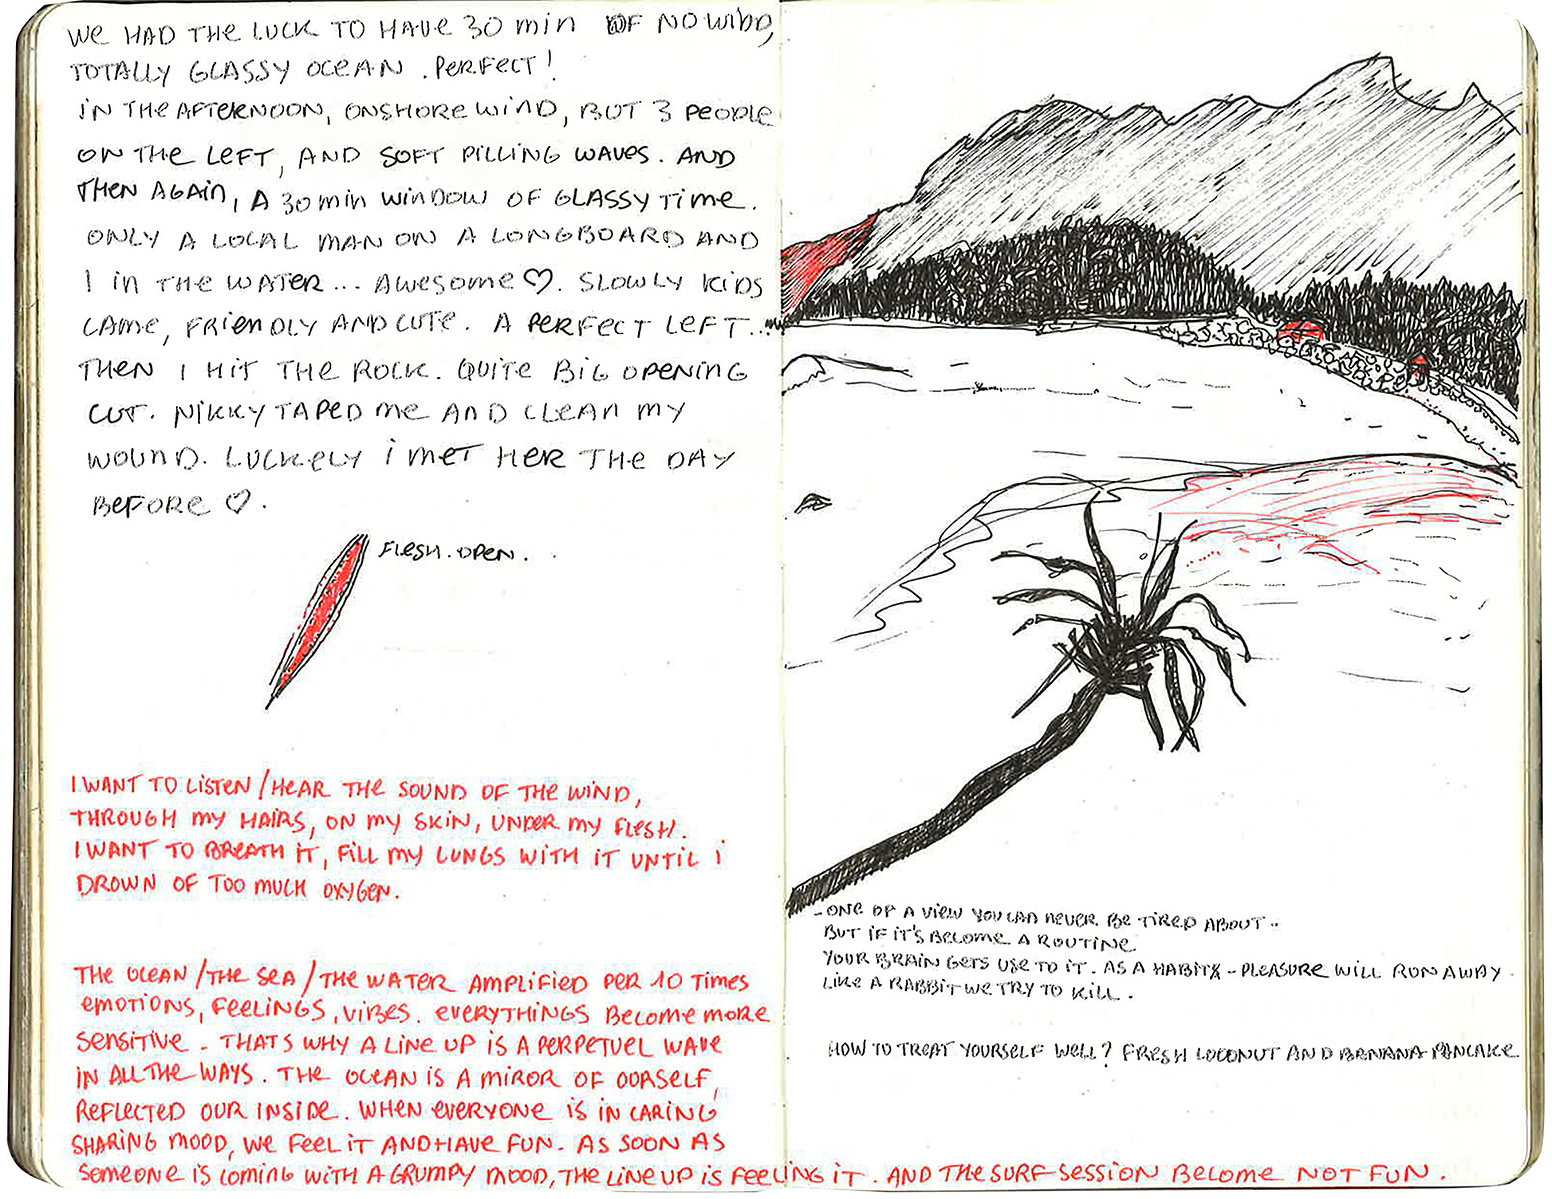 We HAD THE LUCK TO HAVE 30 min OF NO WIND,
TOTALLY GLASSY OCEAN. PERFECT!
IN THE AFTERNOON, ONSHORE WIND, BUT 3 PEOPLE
ON THE LEFT, AND SOFT PILLING WAVES. AND
THEN AGAIN, A 30 min WINDOW OF GLASSY TIME.
ONLY A LOCAL MAN ON A LONGBOARD AND
I IN THE WATER... AWESOME ♡. SLOWLY KIDS
CAME, FRIENDLY AND CUTE. A PERFECT LEFT...
THEN I HIT THE ROCK. QUITE BIG OPENING
CUT. NIKKY TAPED ME AND CLEAN MY
WOUND. LUCKELY I MET HER THE DAY
BEFORE ♡.
FLESH. OPEN.
I WANT TO LISTEN/HEAR THE SOUND OF THE WIND,
THROUGH MY HAIRS, ON MY SKIN, UNDER MY FLESH.
I WANT TO BREATH IT, FILL MY LUNGS WITH IT UNTIL I
DROWN OF TOO MUCH OXYGEN.
THE OCEAN/THE SEA/THE WATER AMPLIFIED PER 10 TIMES
EMOTIONS, FEELINGS, VIBES. EVERYTHINGS BECOME MORE
SENSITIVE - THATS WHY A LINE UP IS A PERPETUEL WAVE
IN ALL THE WAYS. THE OCEAN IS A MIROR OF OORSELF,
REFLECTED OUR INSIDE. WHEN EVERYONE IS IN CARING
SHARING MOOD, WE FEEL IT AND HAVE FUN. AS SOON AS
SOMEONE IS COMING WITH A GRUMPY MOOD, THE LINE UP IS FEELING IT. AND THE SURF SESSION BECOME NOT FUN.
- ONE OF A VIEW YOU CAN NEVER BE TIRED ABOUT..
BUT IF IT'S BECOME A ROUTINE
YOUR BRAIN GETS USE TO IT. AS A HABIT - PLEASURE WILL RUN AWAY
LIKE A RABBIT WE TRY TO KILL.
HOW TO TREAT YOURSELF WELL? FRESH COCONUT AND BANANA PANCAKE